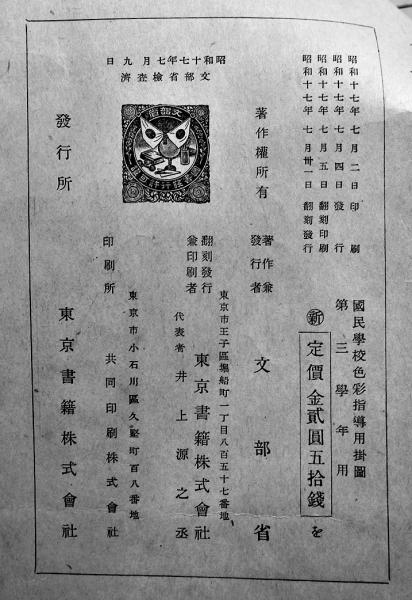 昭和十七年七月二日印刷
昭和十七年七月四日發行
昭和十七年七月五日翻刻印刷
昭和十七年七月卅一日翻刻發行
國民學校色彩指導用掛圖
第三學年用
㊟新
定價金貳圓五拾錢
を
著作權所有
著作兼發行者
文部省
東京市王子區堀船町一丁目八百五十七番地
翻刻發行兼印刷者
東京書籍株式會社
代表者 井上源之丞
東京市小石川區久堅町百八番地
印刷所
共同印刷株式會社
昭和十七年七月九日
文部省檢查濟
文部省
發行所
東京書籍株式會社